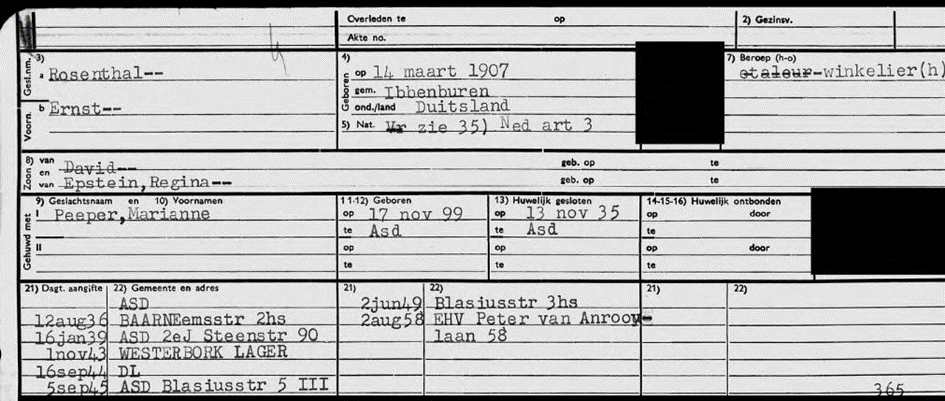 Overleden te op 2) Gezinsv.
Akte no.
Gesl.nm. 3) a Rosenthal--
Voorn. b Ernst--
4) Geboren op 14 maart 1907
gem. Ibbenburen
ond./land Duitsland
5) Nat. Vr zie 35) Ned art 3
7) Beroep (h-o)
etaleur-winkelier(h)
Zoon 8) van David-- geb. op te
en van Epstein,Regina-- geb. op te
Gehuwd met
9) Geslachtsnaam en 10) Voornamen 11-12) Geboren 13) Huwelijk gesloten 14-15-16) Huwelijk ontbonden
I Peeper,Marianne op 17 nov 99 op 13 nov 35 op door
te Asd te Asd te
II op op op door
te te te
21) Dagt. aangifte 22) Gemeente en adres 21) 22) 21) 22)
ASD 2jun49 Blasiusstr 3hs
12aug36 BAARNEemsstr 2hs 2aug58 EHV Peter van Anrooy-
16jan39 ASD 2eJ Steenstr 90 laan 58
1nov43 WESTERBORK LAGER
16sep44 DL
5sep45 ASD Blasiusstr 5 III
365